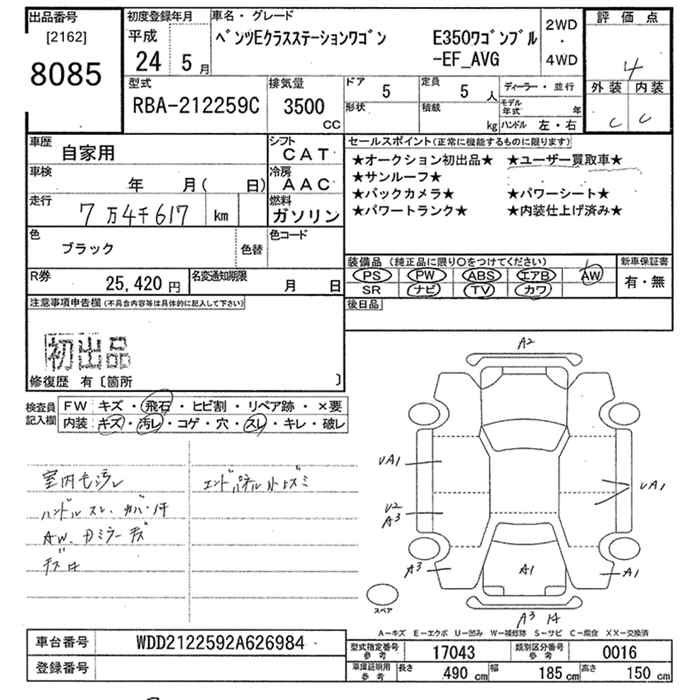 出品番号
[2162]
8085
初度登録年月
平成
24 5 月
車名・グレード
ベンツEクラスステーションワゴン E350ワゴンブル
-EF_AVG
2WD
・
4WD
評価点
4
外装 内装
C C
型式
RBA-212259C
排気量
3500
CC
ドア 5
形状
定員 5 人
積載 kg
ディーラー・並行
モデル年式 年
ハンドル 左・右
車歴 自家用
車検 年 月( 日)
走行 7万4千617 km
色 ブラック 色替
シフト CAT
冷房 AAC
燃料 ガソリン
色コード
R券 25,420 円
名変通知期限 月 日
セールスポイント(正常に機能するものに限ります)
★オークション初出品★ ★ユーザー買取車★
★サンルーフ★
★バックカメラ★ ★パワーシート★
★パワートランク★ ★内装仕上げ済み★
装備品(純正品に限り○をつけてください) 新車保証書
PS PW ABS エアB AW 有・無
SR ナビ TV カワ
後日品
注意事項申告欄(不具合内容等は具体的に記入して下さい)
初出品
修復歴 有〔箇所 〕
検査員記入欄
FW キズ・飛石・ヒビ割・リペア跡・×要
内装 キズ・汚レ・コゲ・穴・スレ・キレ・破レ
室内 汚レ
ハンドル スレ
エンドパネル
AW
A2
UA1
UA1
U2
A3
A3
A1
A1
A3
スペア
A−キズ E−エクボ U−凹み W−補修跡 S−サビ C−腐食 XX−交換済
車台番号 WDD2122592A626984
登録番号
型式指定番号 参考 17043 類別区分番号 参考 0016
車庫証明用 参考 長さ 490 cm 幅 185 cm 高さ 150 cm